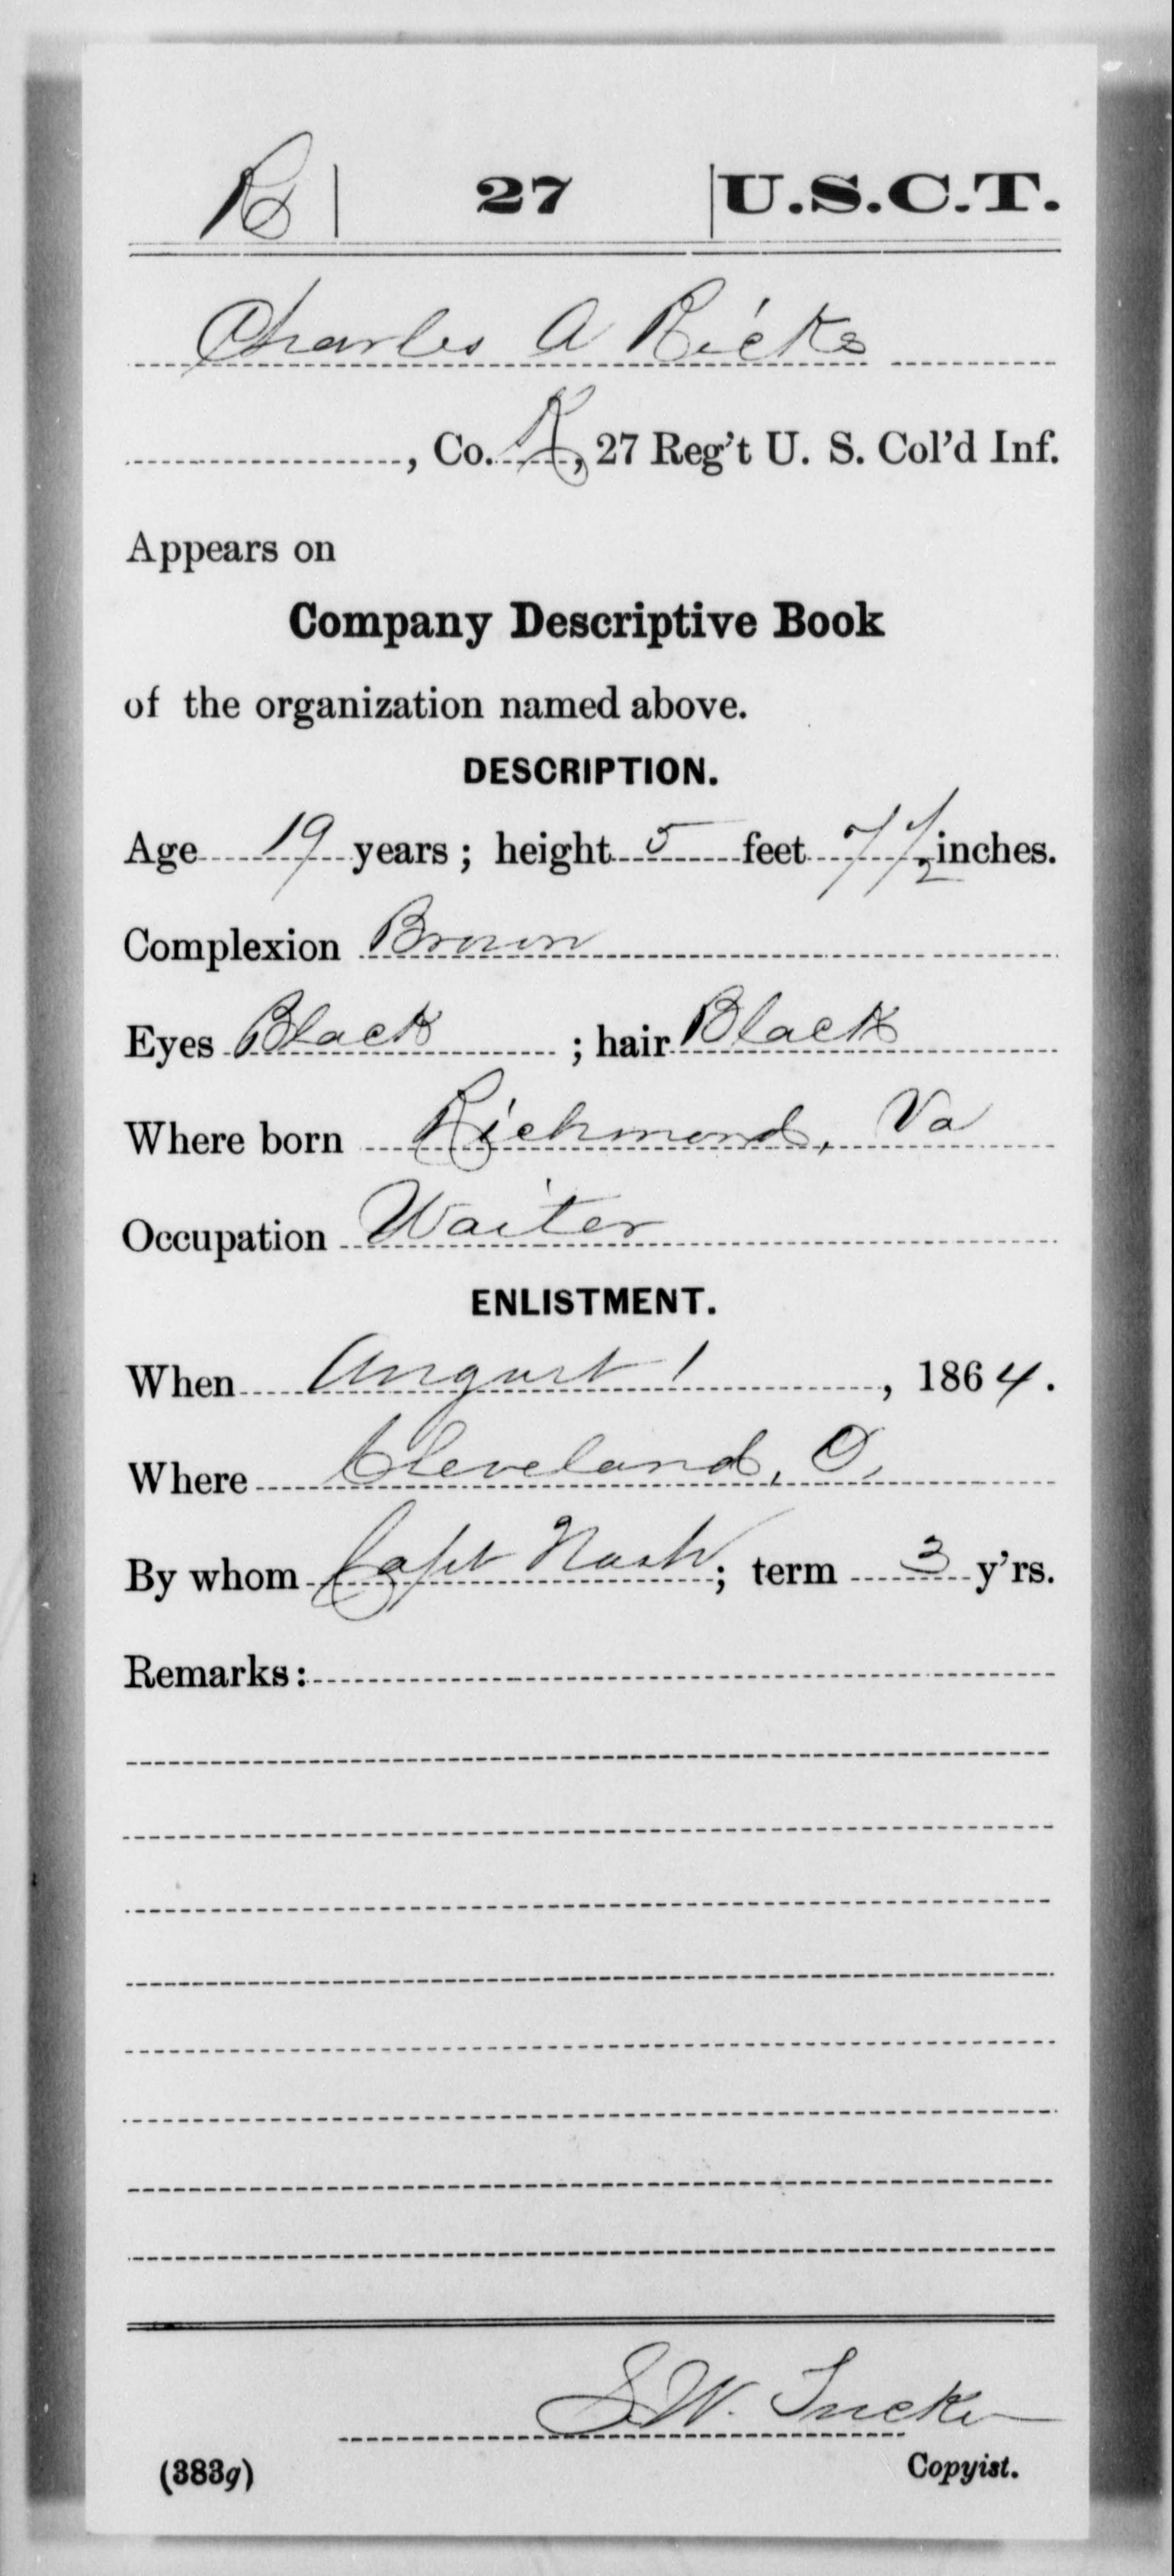 R | 27 | U.S.C.T.
Charles A Ricks
, Co. K, 27 Reg't U. S. Col'd Inf.
Appears on
Company Descriptive Book
of the organization named above.
DESCRIPTION.
Age 19 years; height 5 feet 7 1/2 inches.
Complexion Brown
Eyes Black ; hair Black
Where born Richmond, Va
Occupation Waiter
ENLISTMENT.
When August 1, 1864.
Where Cleveland, O,
By whom Capt Nash; term 3 y'rs.
Remarks:
S.W. Tucker
(383g) Copyist.